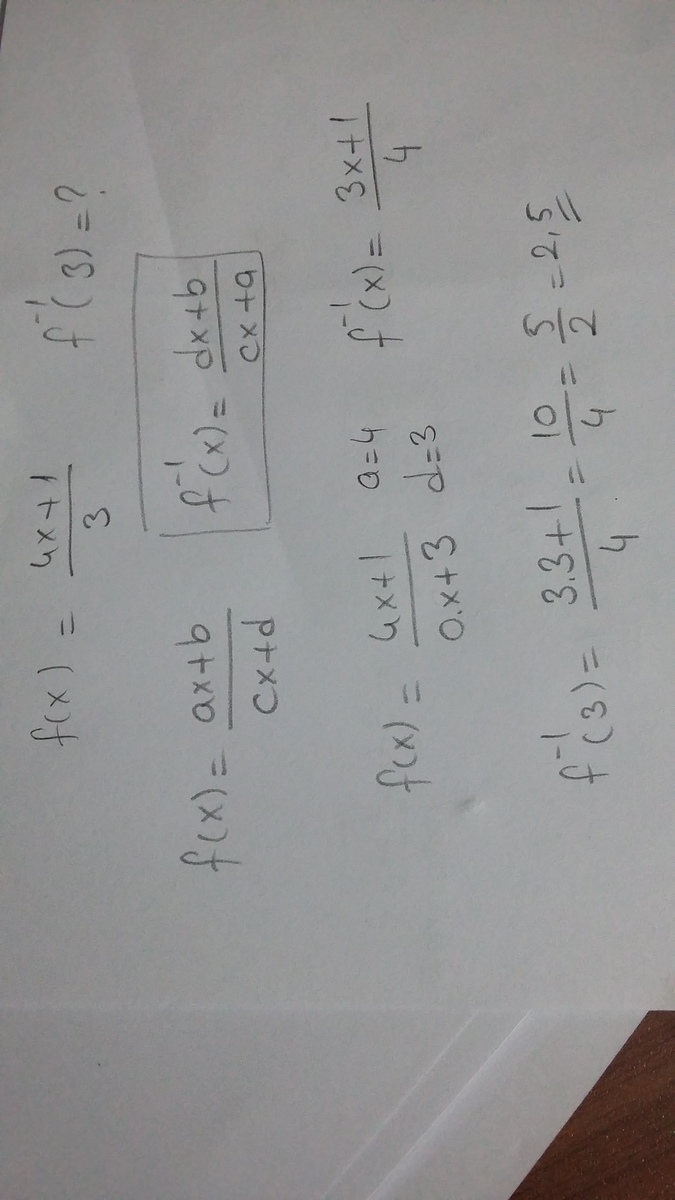 f(x) = 4x+1/3 f⁻¹(3) = ?
f(x) = ax+b/cx+d f⁻¹(x) = dx+b/cx+a
f(x) = 4x+1/0.x+3 a=4 d=3 f⁻¹(x) = 3x+1/4
f⁻¹(3) = 3.3+1/4 = 10/4 = 5/2 = 2,5